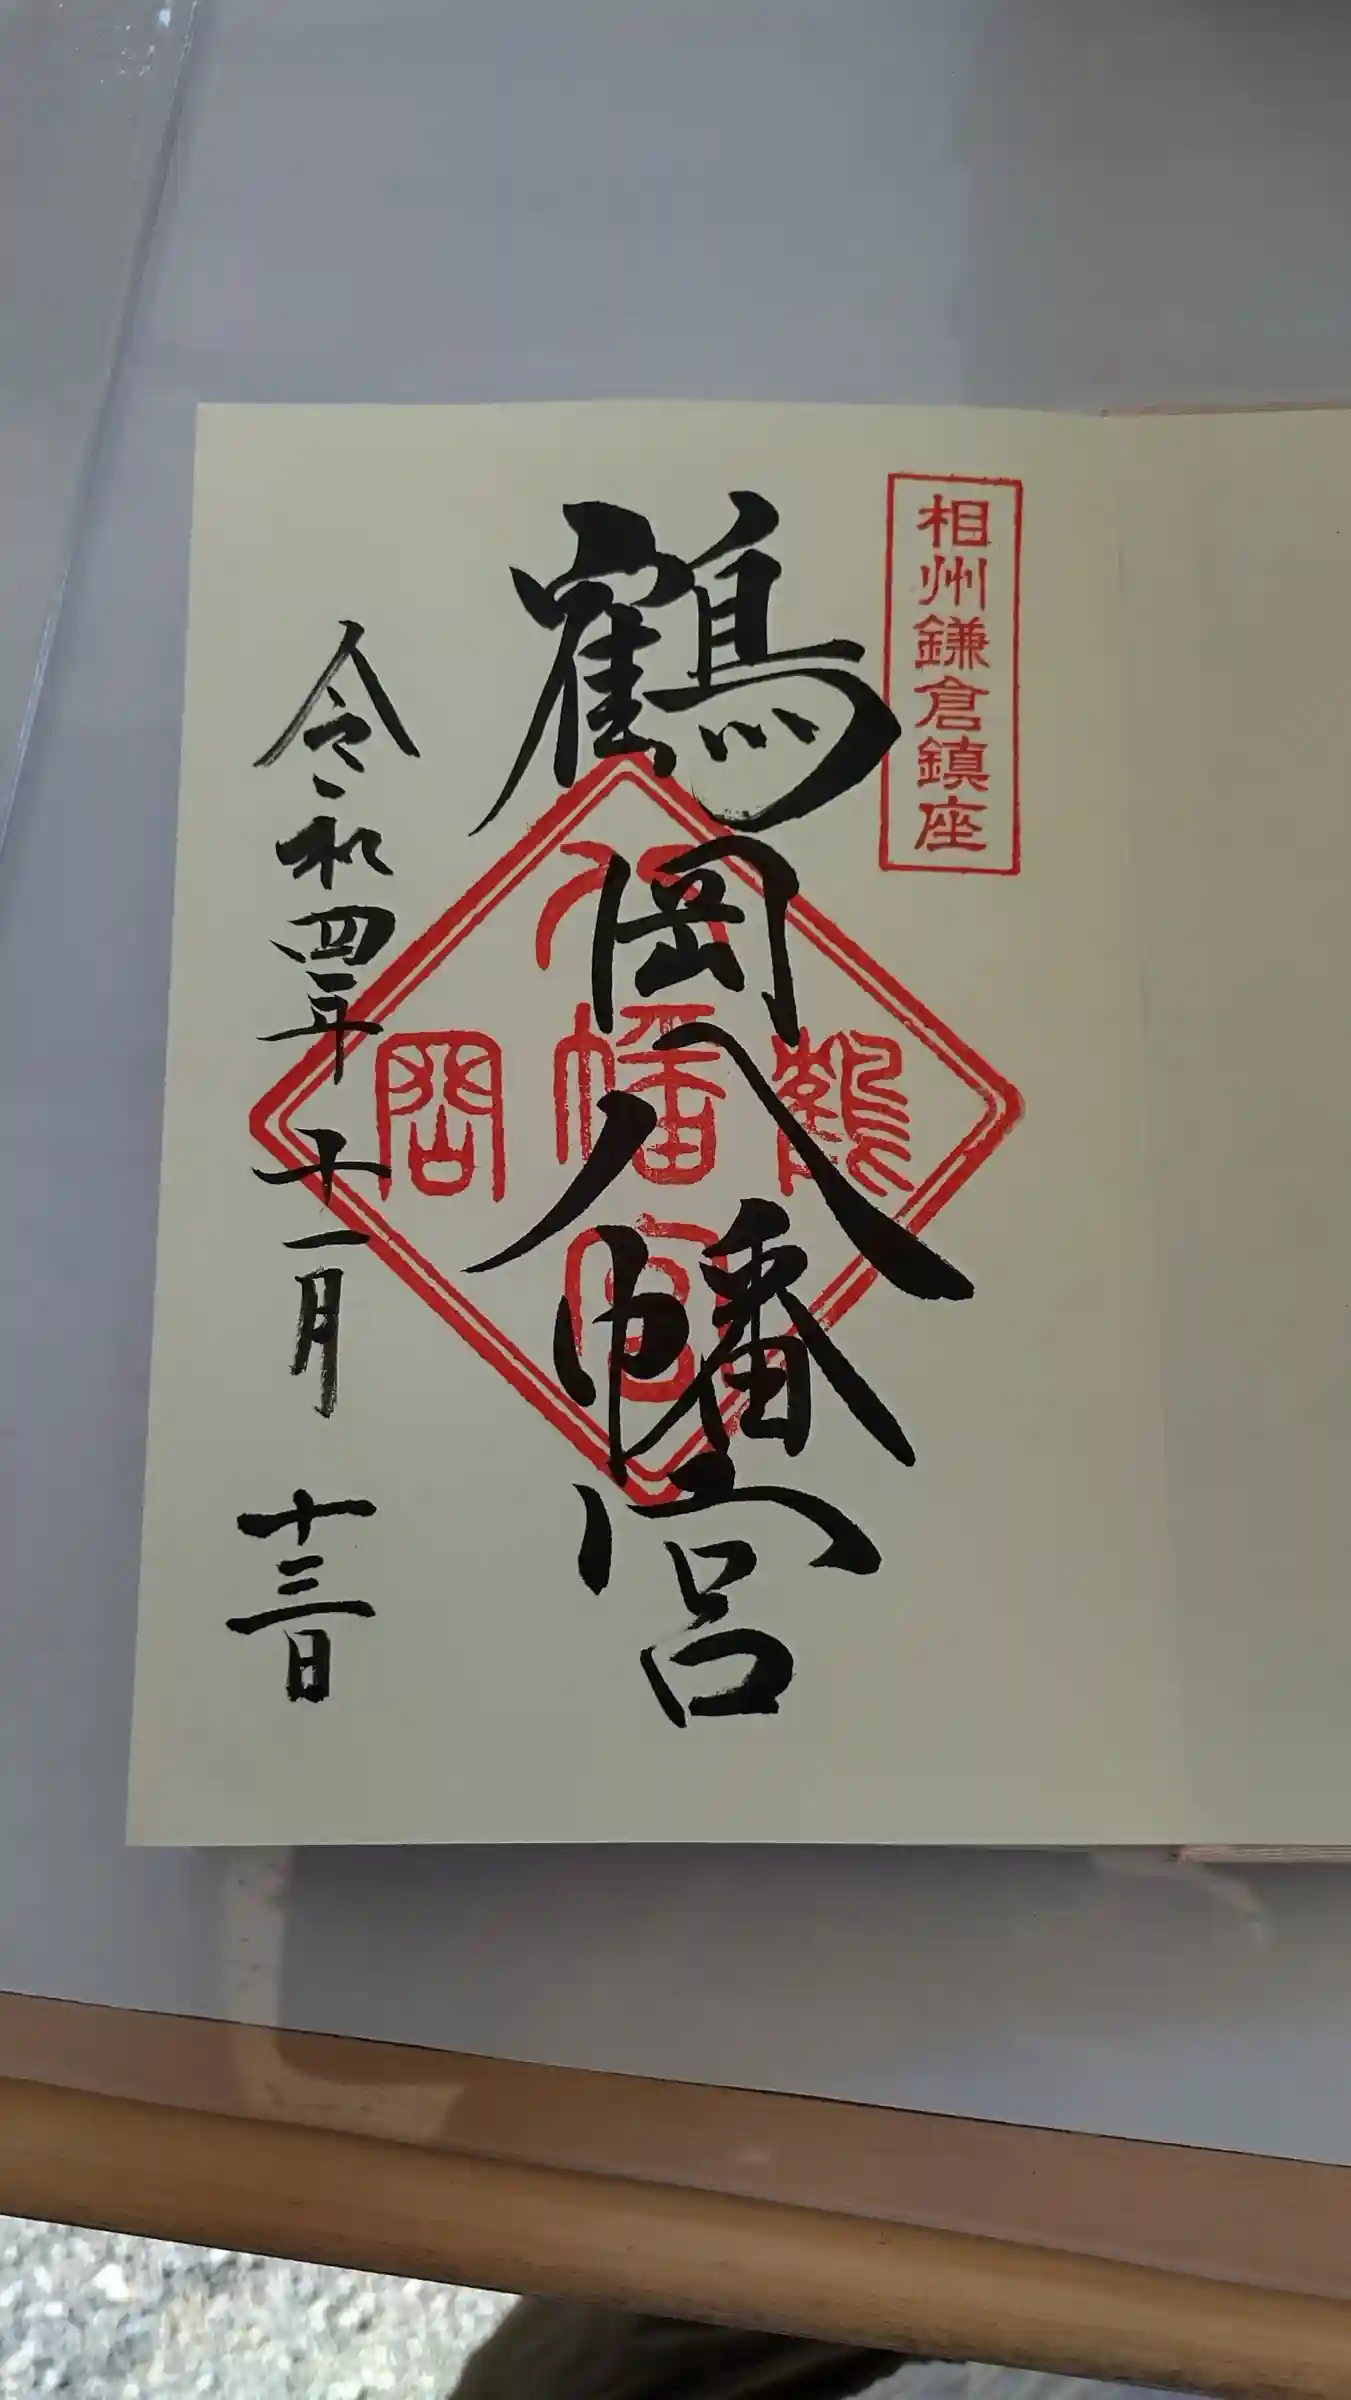 相州鎌倉鎮座
鶴岡八幡宮
鶴岡八幡宮
令和四年十一月十三日